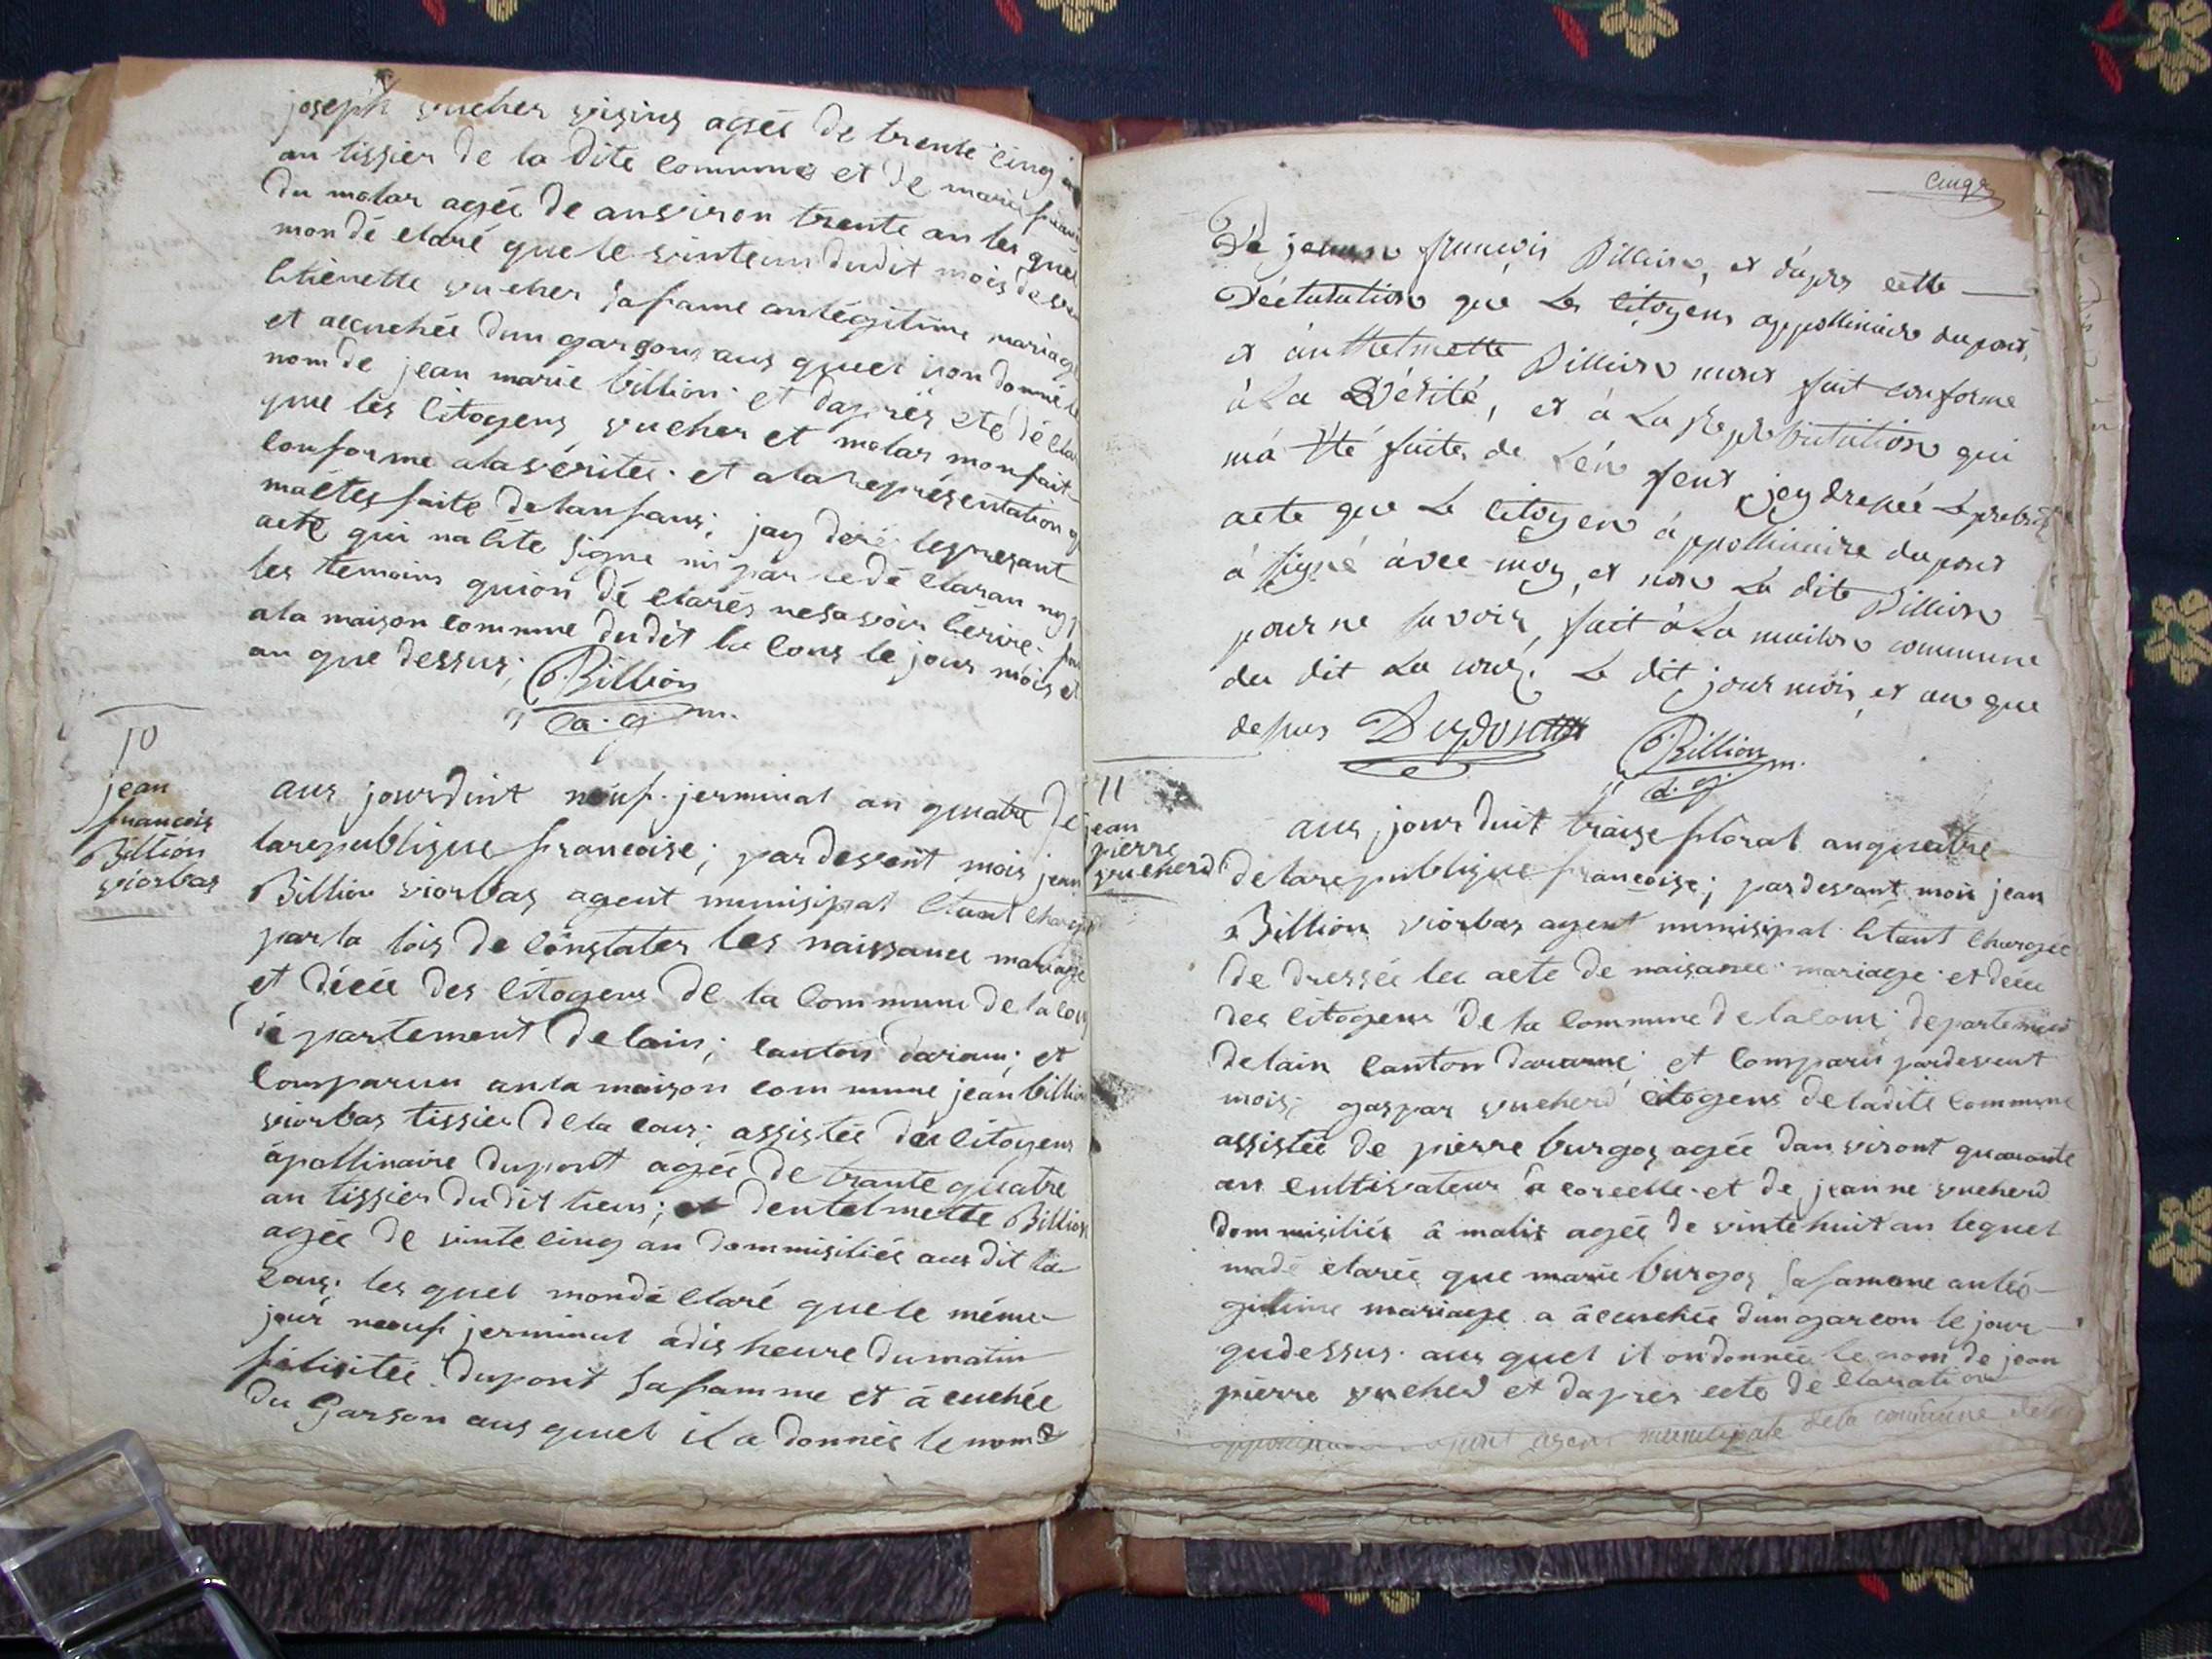 joseph vucher visins agéé de trente cinq
an tissier de la dite commune et de marie
du molar agéé de anviron trente an les quel
mon dé claré que le vinteun dudit mois de
Etienette vucher sa fame an légitime mariage
et accuchée dun garçons aus quel ison donné le
nom de jean marie billion et daprès cete décla
que les Citoyens vucher et molar mon fait
conforme ala vérités et ala représentation q
ma étes faite de lanfans; jay déré les presant
acte qui na été signe ni par le dé claran ny p
les temoins quion dé clarés ne savoir Cerire
ala maison commune dudit la Cous le jour mois et
an que dessus; Billion
a. g. m.
10
jean
francois
Billion
viorbas
aus jourduit neuf jerminal an quatre de
larepublique francoise; par devent mois jean
Billion viorbas agent munisipal Etant Charg
par la lois de Constater les naissance mariage
et décéé des Citoyens de la Commune de la cou
dé partement de lain; canton daranc; et
Comparun an la maison commune jean billion
viorbas tissier de la cous; assistéé des Citoyens
apollinaire dupont agéé de trante quatre
an tissier dudit lieus; et dentelmette Billion
agéé de vinte cinq an dommisiliéé aus dit la
cous; les quel mon dé claré que le même
jour neouf jerminal a dis heure du matin
félisitéé dupont sa famme et a cuchée
du Garson aus quel il a donnéé le nom
Cinq
De jean francois Billion, et d'apres cette
Déclaration que Les Citoyens appollinaire dupont,
et anthelmette Billion mont fait conforme
à La Vérité, et à La Représentation qui
m'a Eté faite de L'en fent jey drepée Le presnt
acte que Le Citoyen appollinaire dupont
à signé àvec moy, et non La dite Billion
pour ne savoir, fait à La maison commune
du dit La coux. Le dit jour mois, et an que
depus Dupont Billion
a. g. m.
11
jean
pierre
vucherd
aus jourduit traise floral anquatre
de larepublique francoise; par devant mois jean
Billion viorbas agent munisipal Etant Chargéé
de dresséé les acte de naisance mariage et décéé
des Citoyens de la Commune de la Cous departement
de lain Canton daranc; et Comparu pardevent
mois; gaspar vucherd Citoyens de ladite Commune
assistéé de pierre burgos agéé dan viront quarante
an Cultivateur a corcelle et de jeanne vucherd
dom misiliéé â malix agéé de vinte huit an lequel
madé claréé que marie burgos sa famme an lé
gitime mariage a âccuchée dun garcon le jour
qudessus aus quel il on donnéé le nom de jean
pierre vucherd et dapres cete declaration
agent municipale de la commune de la